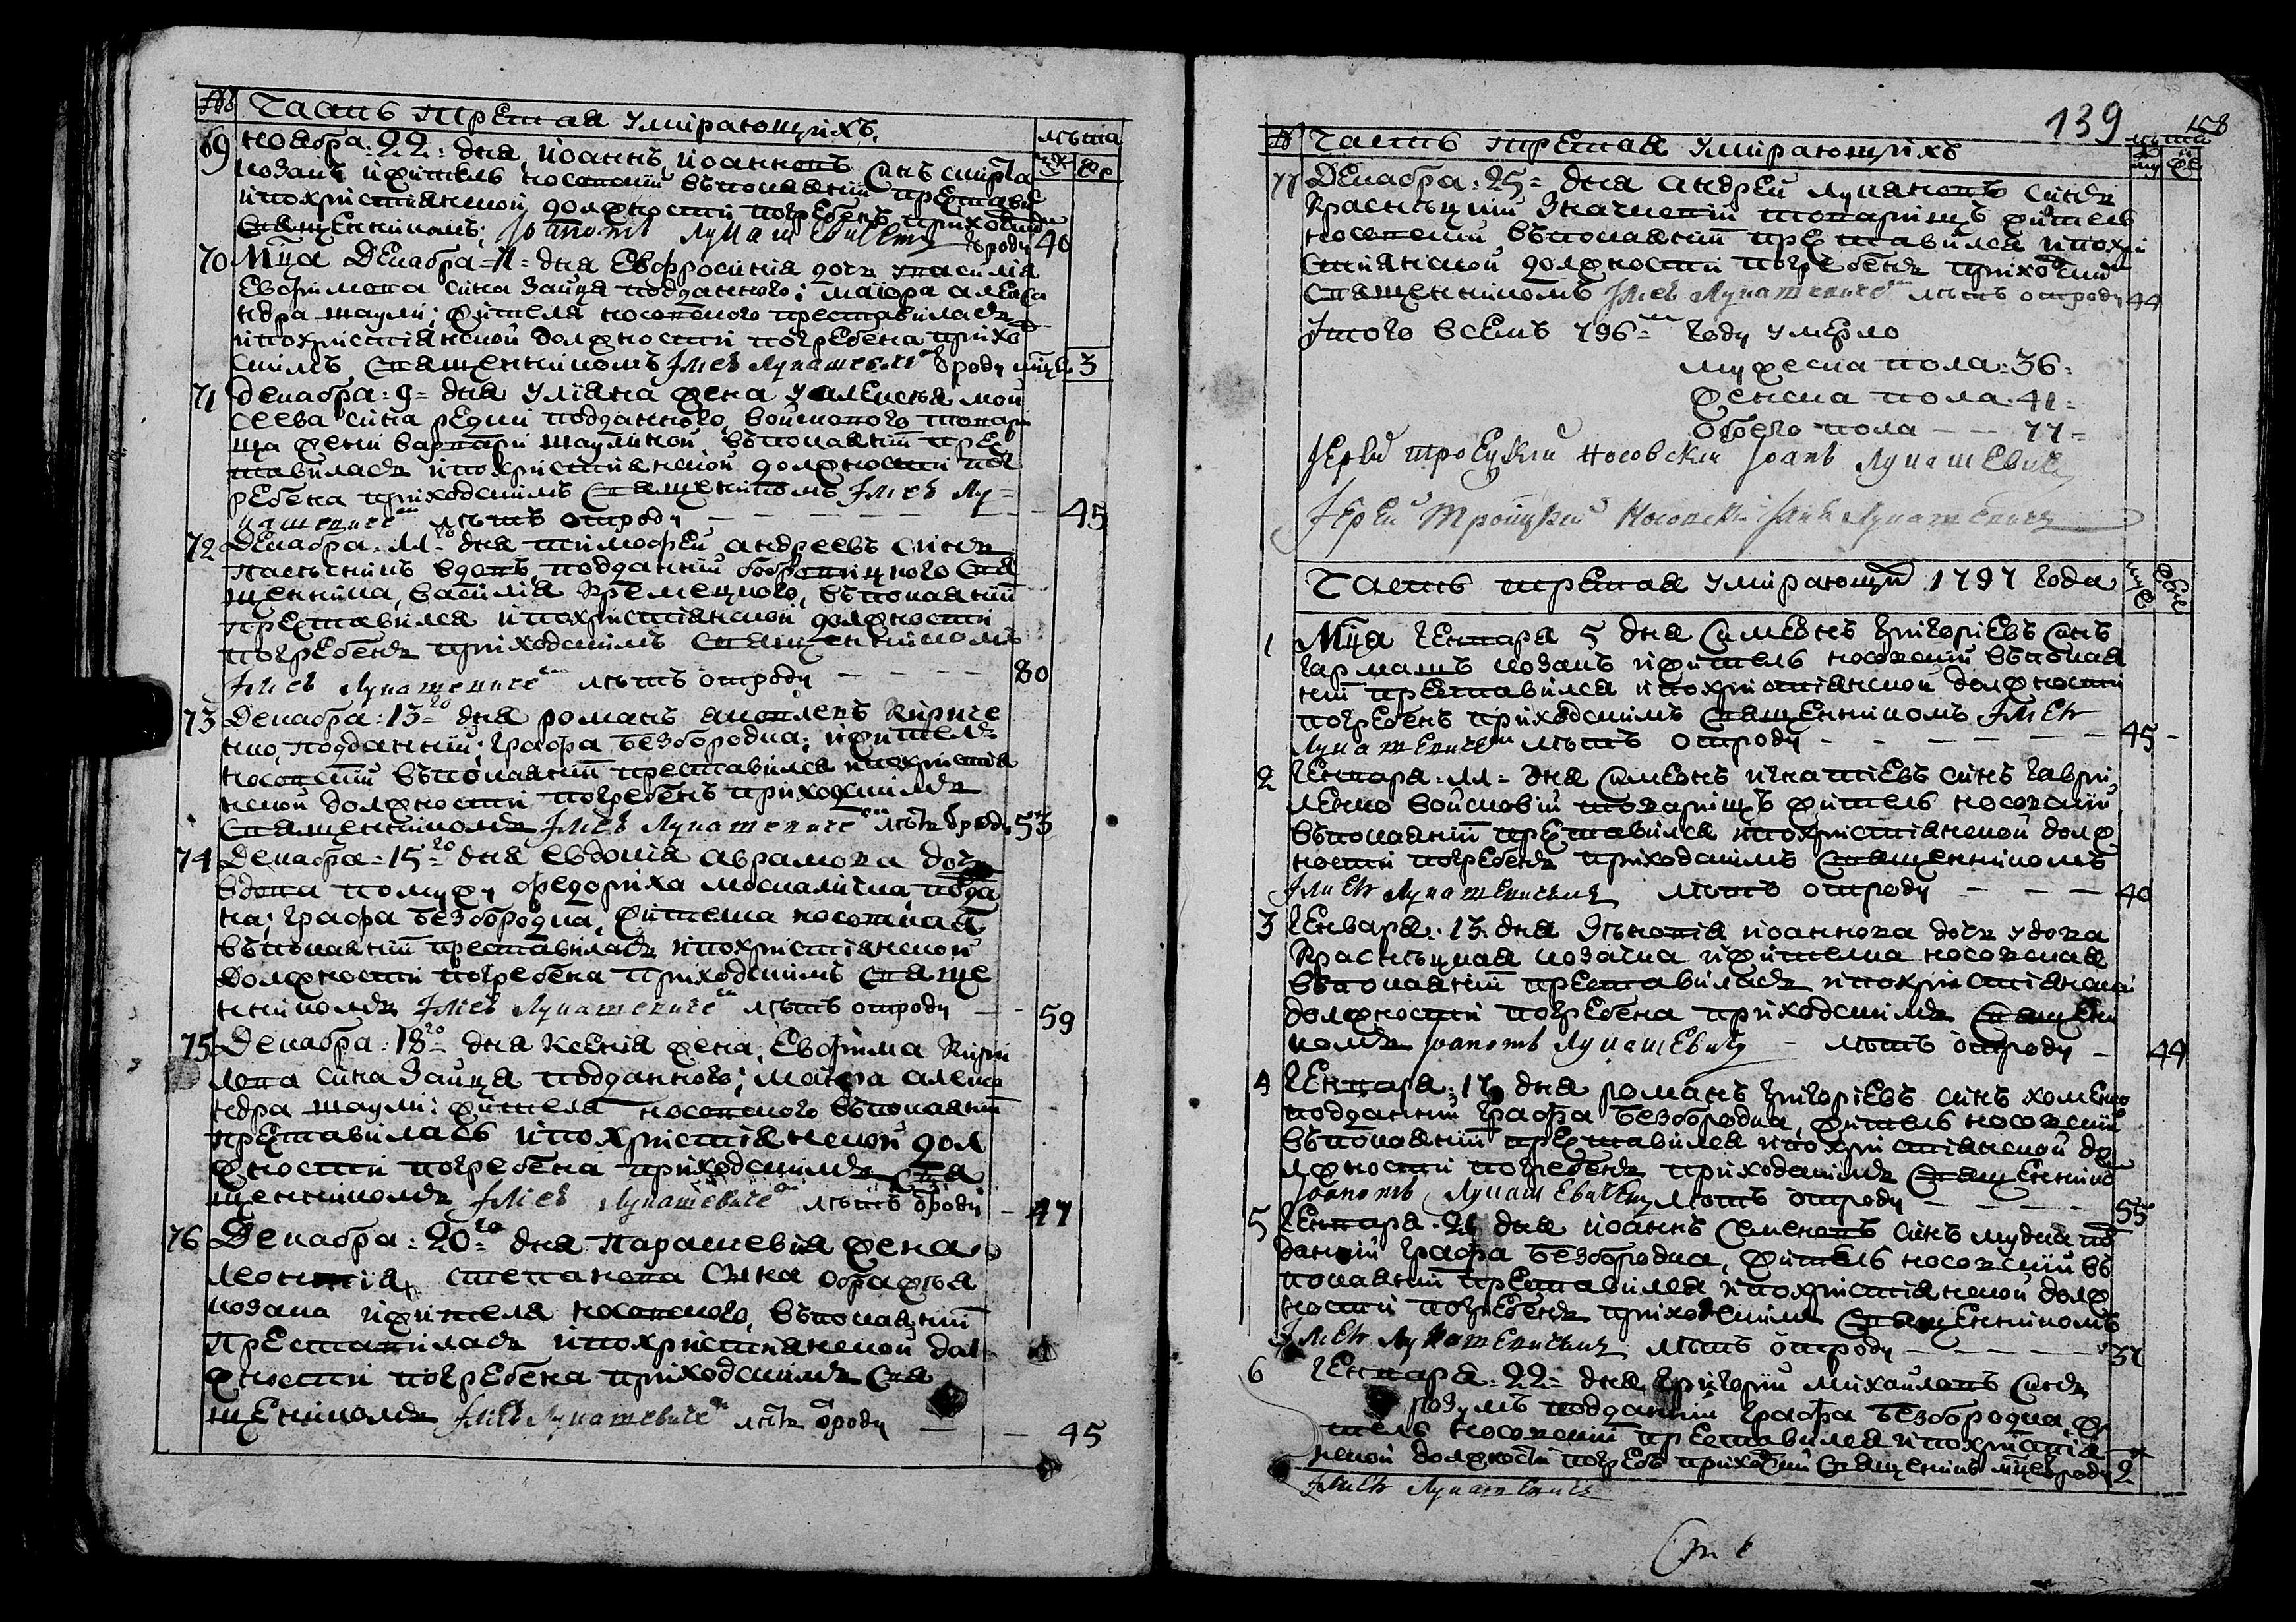 № Часть третая умирающихъ. лѣта
69 ноабра: 22: дня, иоаннъ иоанновъ синъ
козакъ ижитель носовскій въпокаяніи преставися
ипохристіянской должности погребенъ приходским
священникомъ; Іоаномъ Лукашевичемъ ѿроду 40
70 Мца декабра =11= дня Евфросинія дочь василія
Евфимова сина Зайца подданного; маіора алекса
ндра шаули; жителя носовского преставиласъ
ипохристіянской должности погребена прихо
скимъ священникомъ Іліею Лукашевиче ѿроду мцей 3
71 декабра: 9= дня уліяна жена у алексѣя мой
сеева сина редки подданного войскового товари
ща жени варвари шаулиной въпокаяніи пре
ставиласъ ипохристіянской должности пог
ребена приходскимъ священникомъ Іліею Лу=
кашевиче лѣтъ отроду 45
72 Декабра: 11 дня тимофей андреевъ синъ
пасѣчникъ вдовъ, подданній бобровицкого свя
щенника, василія Кремецкого, въпокаяніи
преставился ипохристіянской должности
погребенъ приходскимъ священникомъ
Іліею Лукашевиче лѣтъ отроду 80
73 Декабра: 13 дня романъ яковлевъ Киричe
нко, подданній; графа безбородка; ижитель
носовскій въпокаяніи преставился ипохристія
нской должности погребенъ приходскимъ
священникомъ Іліею Лукашевиче лѣтъ ѿроду 53
74 Декабра: 15 дня евдокія аврамова дочь
вдова помужу федориха москалиска, подда
на; графа безбородка, жителка носовская
въпокаяніи преставиласъ ипохристіянской
должности погребена приходскимъ свяще
нникомъ Іліею Лукашевиче лѣтъ отроду 59
75 Декабра: 18 дня Ксенія жена, Евфима Кири
лова сина Зайца подданного; маіора алекса
ндра шаули: жителя носовского въпокаяніи
преставилась ипохристіянской дол
жности погребена приходскимъ свя
щенникомъ Іліею Лукашевиче лѣтъ ѿроду 47
76 Декабра: 20 дня Параскевія жена
леонтія, степанова сына
козака ижителя носовского, въпокаяніи
Преставиласъ ипохристіянской дол
жности погребена приходскимъ свя
щенникомъ Іліею Лукашевиче лѣтъ ѿроду 45
139 158
№ Часть третая умирающихъ лѣта
77 Декабра: 25= дня андрей лукяновъ синъ
Красницкій значковій товарищъ житель
носовскій, въпокаяніи преставился ипохри
стиянской должности погребенъ приходским
священникомъ Іліею Лукашевиче лѣтъ отроду 44
Итого всемъ 796 году умерло
мужеска пола: 36:
женска пола: 41=
обоего пола 77=
Іерей троецкій носовскій Іоанъ Лукашевичъ
Іерей Тройцкій Носовскій Ілия Лукашевичъ
Часть третая умирающи 1797 года
1 Мца генвара 5 дня Симеонъ григоріевъ синъ
гармашъ козакъ ижитель носовскій, въпокая
ніи преставился ипохристіянской должности
погребенъ приходскимъ священникомъ Іліею
Лукашевиче лѣтъ отроду 45
2 генвара: 11= дня Симеонъ игнатіевъ синъ гаври
ленко войсковій товарищъ житель носовскій
въпокаяніи преставился ипохристіянской долж
ности погребенъ приходскимъ священникомъ
Іліею Лукашевичемъ лѣтъ отроду 40
3 генвара: 13 дня иоаннова дочь удова
Красницкая козачка ижителка носовская
въпокаяніи преставиласъ ипохристіянской
должности погребена приходскимъ священи
комъ Іоаномъ Лукашевичемъ лѣтъ отроду 44
4 генвара: 17 дня романъ григоріевъ синъ хоменко
подданній графа безбородка, житель носовскій
въпокаяніи преставился ипохристіянской до
лжности погребенъ приходскимъ священнико
Іоаномъ Лукашевичемъ лѣтъ отроду 55
5 генвара: 21 дня иоаннъ семеновъ синъ мудка под
данній графа безбородка, житель носовскій въ
покаяніи преставился ипохристіянской долж
ности погребенъ приходскимъ священникомъ
Іліею Лукашевичемъ лѣтъ отроду 37
6 генвара: 22= дня, григорій михайловъ синъ
розумъ подданній графа безбородка, жи
тель носовскій преставился ипохристія
нской должности погребъ приходским священникъ мцей ѿроду 2
Іліею Лукашевичъ